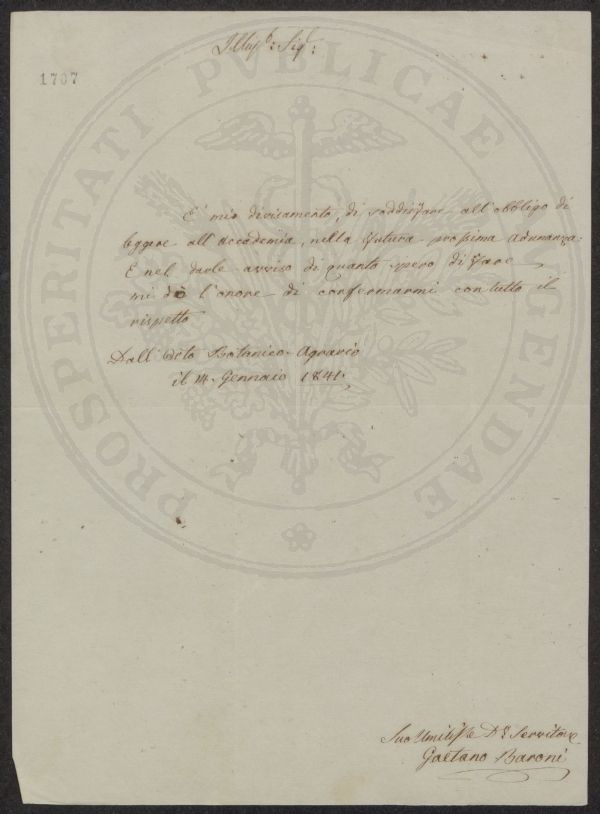 Illus.: Sig.:
1707
PROSPERITATI PVBLICAE AVGENDAE
E' mio divisamento, di soddisfare all'obbligo di
leggere all'accademia, nella futura prossima adunanza:
E nel darle avviso di quanto spero di fare
mi dò l'onore di confermarmi con tutto il
rispetto
Dall'Orto Botanico-Agrario
il 14. Gennaio 1841.
Suo Umiliss.e D.o Servitore
Gaetano Baroni